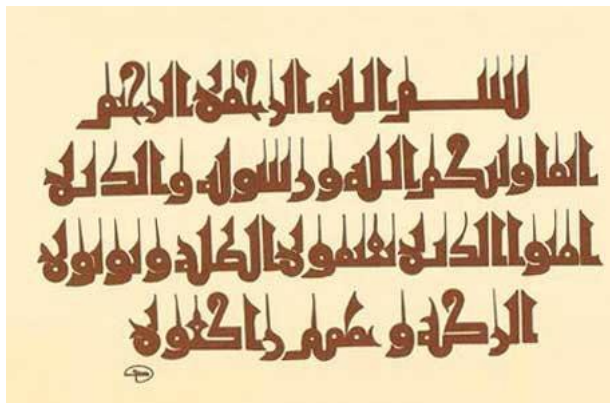 بسم الله الرحمن الرحيم
انما وليكم الله و رسوله والذين
امنوا الذين يقيمون الصلوة و يوتون
الزكوة و هم راكعون